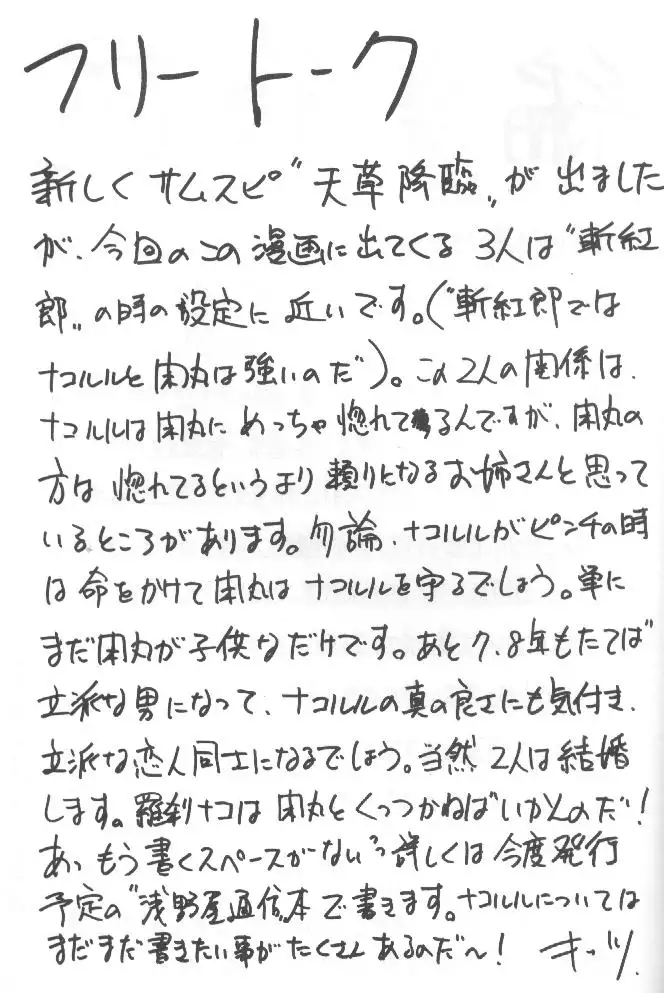 フリートーク
新しくサムスピ〝天草降臨〟が出ました
が、今回のこの漫画に出てくる3人は〝斬紅
郎〟の時の設定に近いです。(〝斬紅郎では
ナコルルと閑丸は強いのだ)。この2人の関係は、
ナコルルは閑丸にめっちゃ惚れてるんですが、閑丸の
方は惚れてるというより頼りになるお姉さんと思って
いるところがあります。勿論、ナコルルがピンチの時
は命をかけて閑丸はナコルルを守るでしょう。単に
まだ閑丸が子供なだけです。あと7、8年もたてば
立派な男になって、ナコルルの真の良さにも気付き、
立派な恋人同士になるでしょう。当然2人は結婚
します。羅刹ナコは閑丸とくっつかねばいかんのだ!
あっもう書くスペースがない詳しくは今度発行
予定の〝浅野屋通信〟本で書きます。ナコルルについては
まだまだ書きたい事がたくさんあるのだ〜! キッツ.